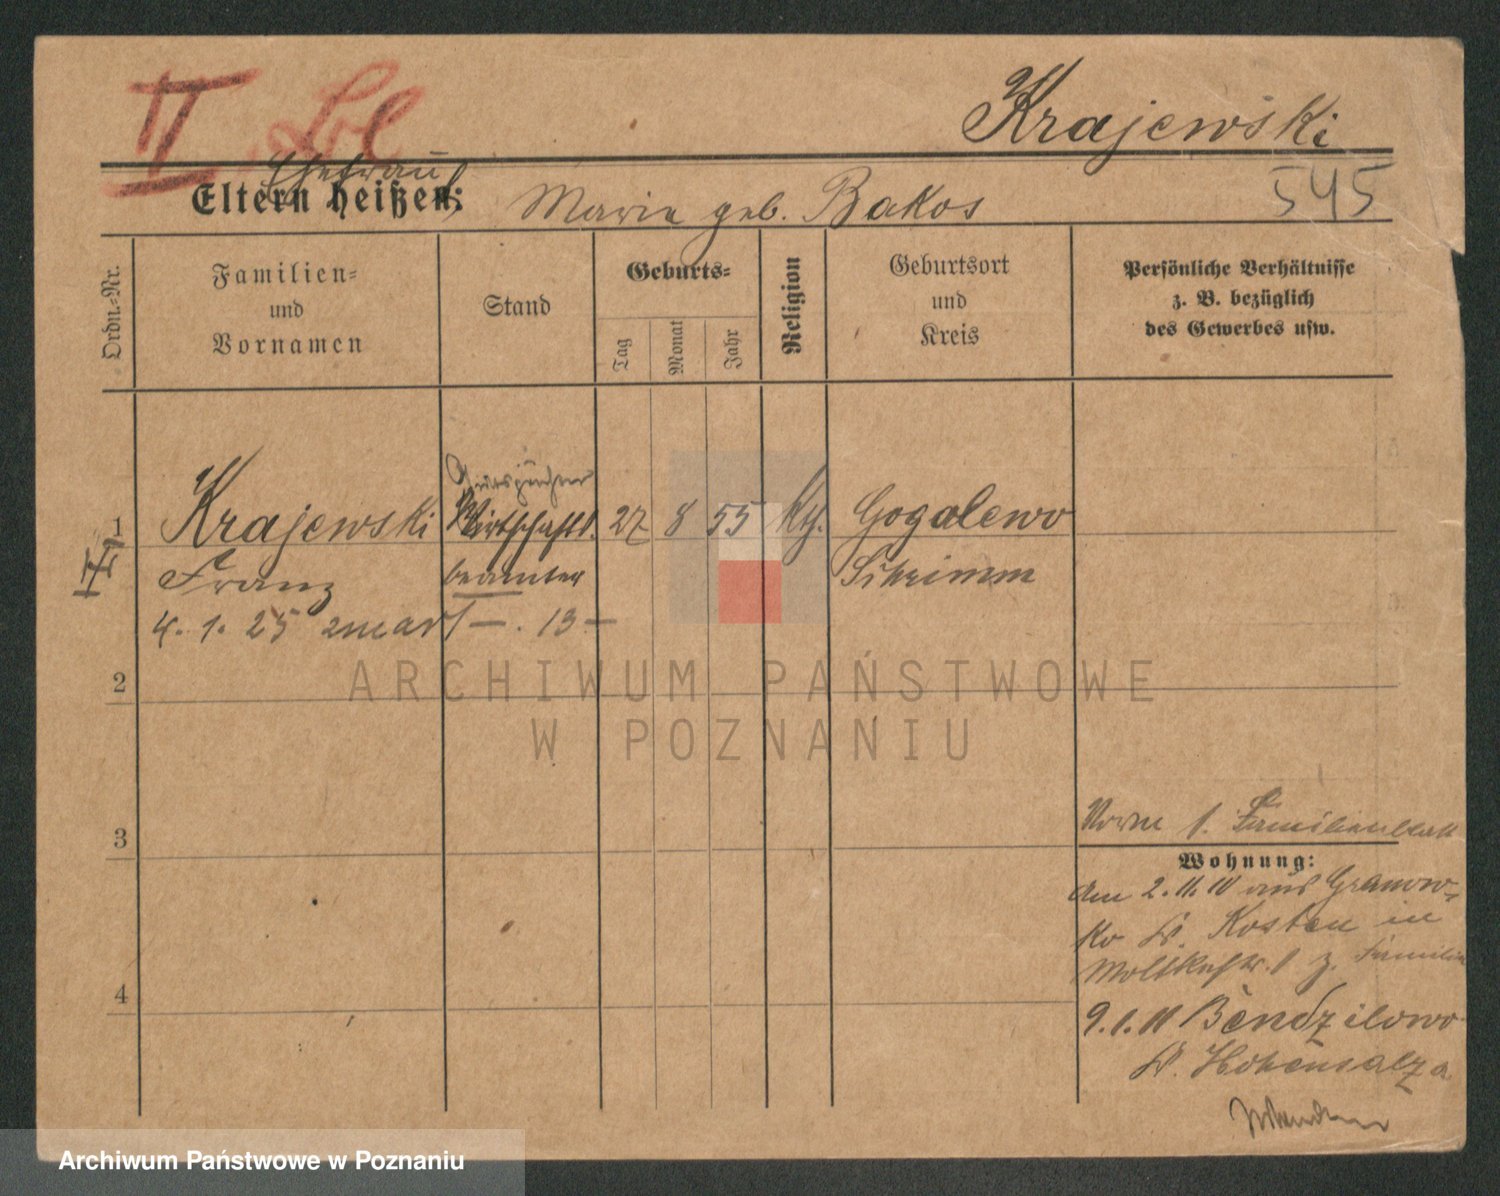 II
Krajewski
Ehefrau
Eltern heißen: Maria geb. Bakos
545
Ordn.-Nr.
Familien-
und
Vornamen
Stand
Geburts-
Tag
Monat
Jahr
Religion
Geburtsort
und
Kreis
Persönliche Verhältnisse
z. B. bezüglich
des Gewerbes usw.
Gutspächter
1 Krajewski Wirtschafts. 27 8 55 kth. Gogolewo
II Franz beamter Schrimm
4. 1. 25 zmarł — . 13 —
2
ARCHIWUM PAŃSTWOWE
W POZNANIU
3
Familienblatt
Wohnung:
am 2.11.10 aus Granow-
ko Kr. Kosten in
Moltkestr. 1 z. Familie
4
9.1.11 Bendzilowo
Kr. Hohensalza
Archiwum Państwowe w Poznaniu